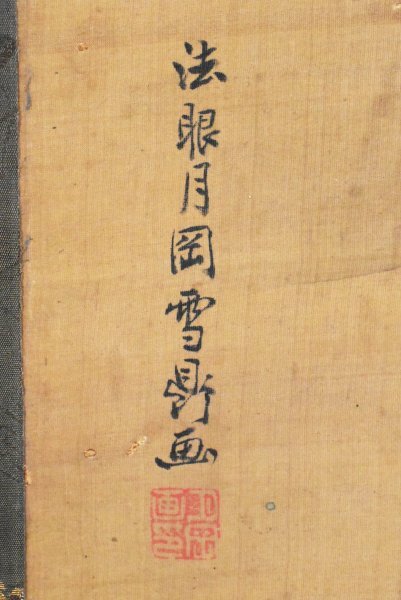 法眼月岡雪鼎画